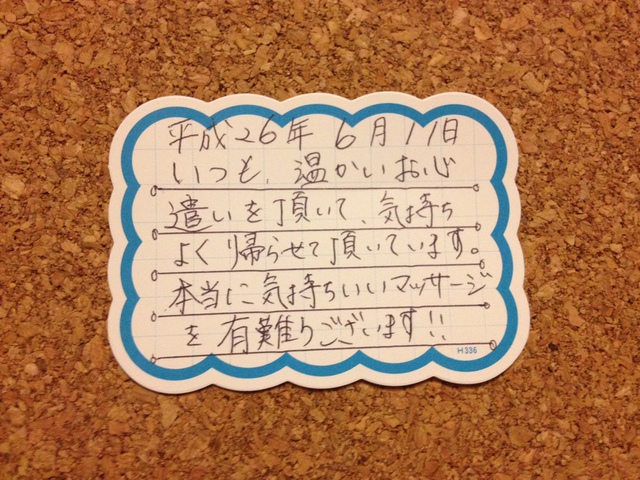 平成26年 6月17日
いつも、温かいお心
遣いを頂いて、気持ち
よく帰らせて頂いています。
本当に気持ちいいマッサージ
を有難うございます!!
H336